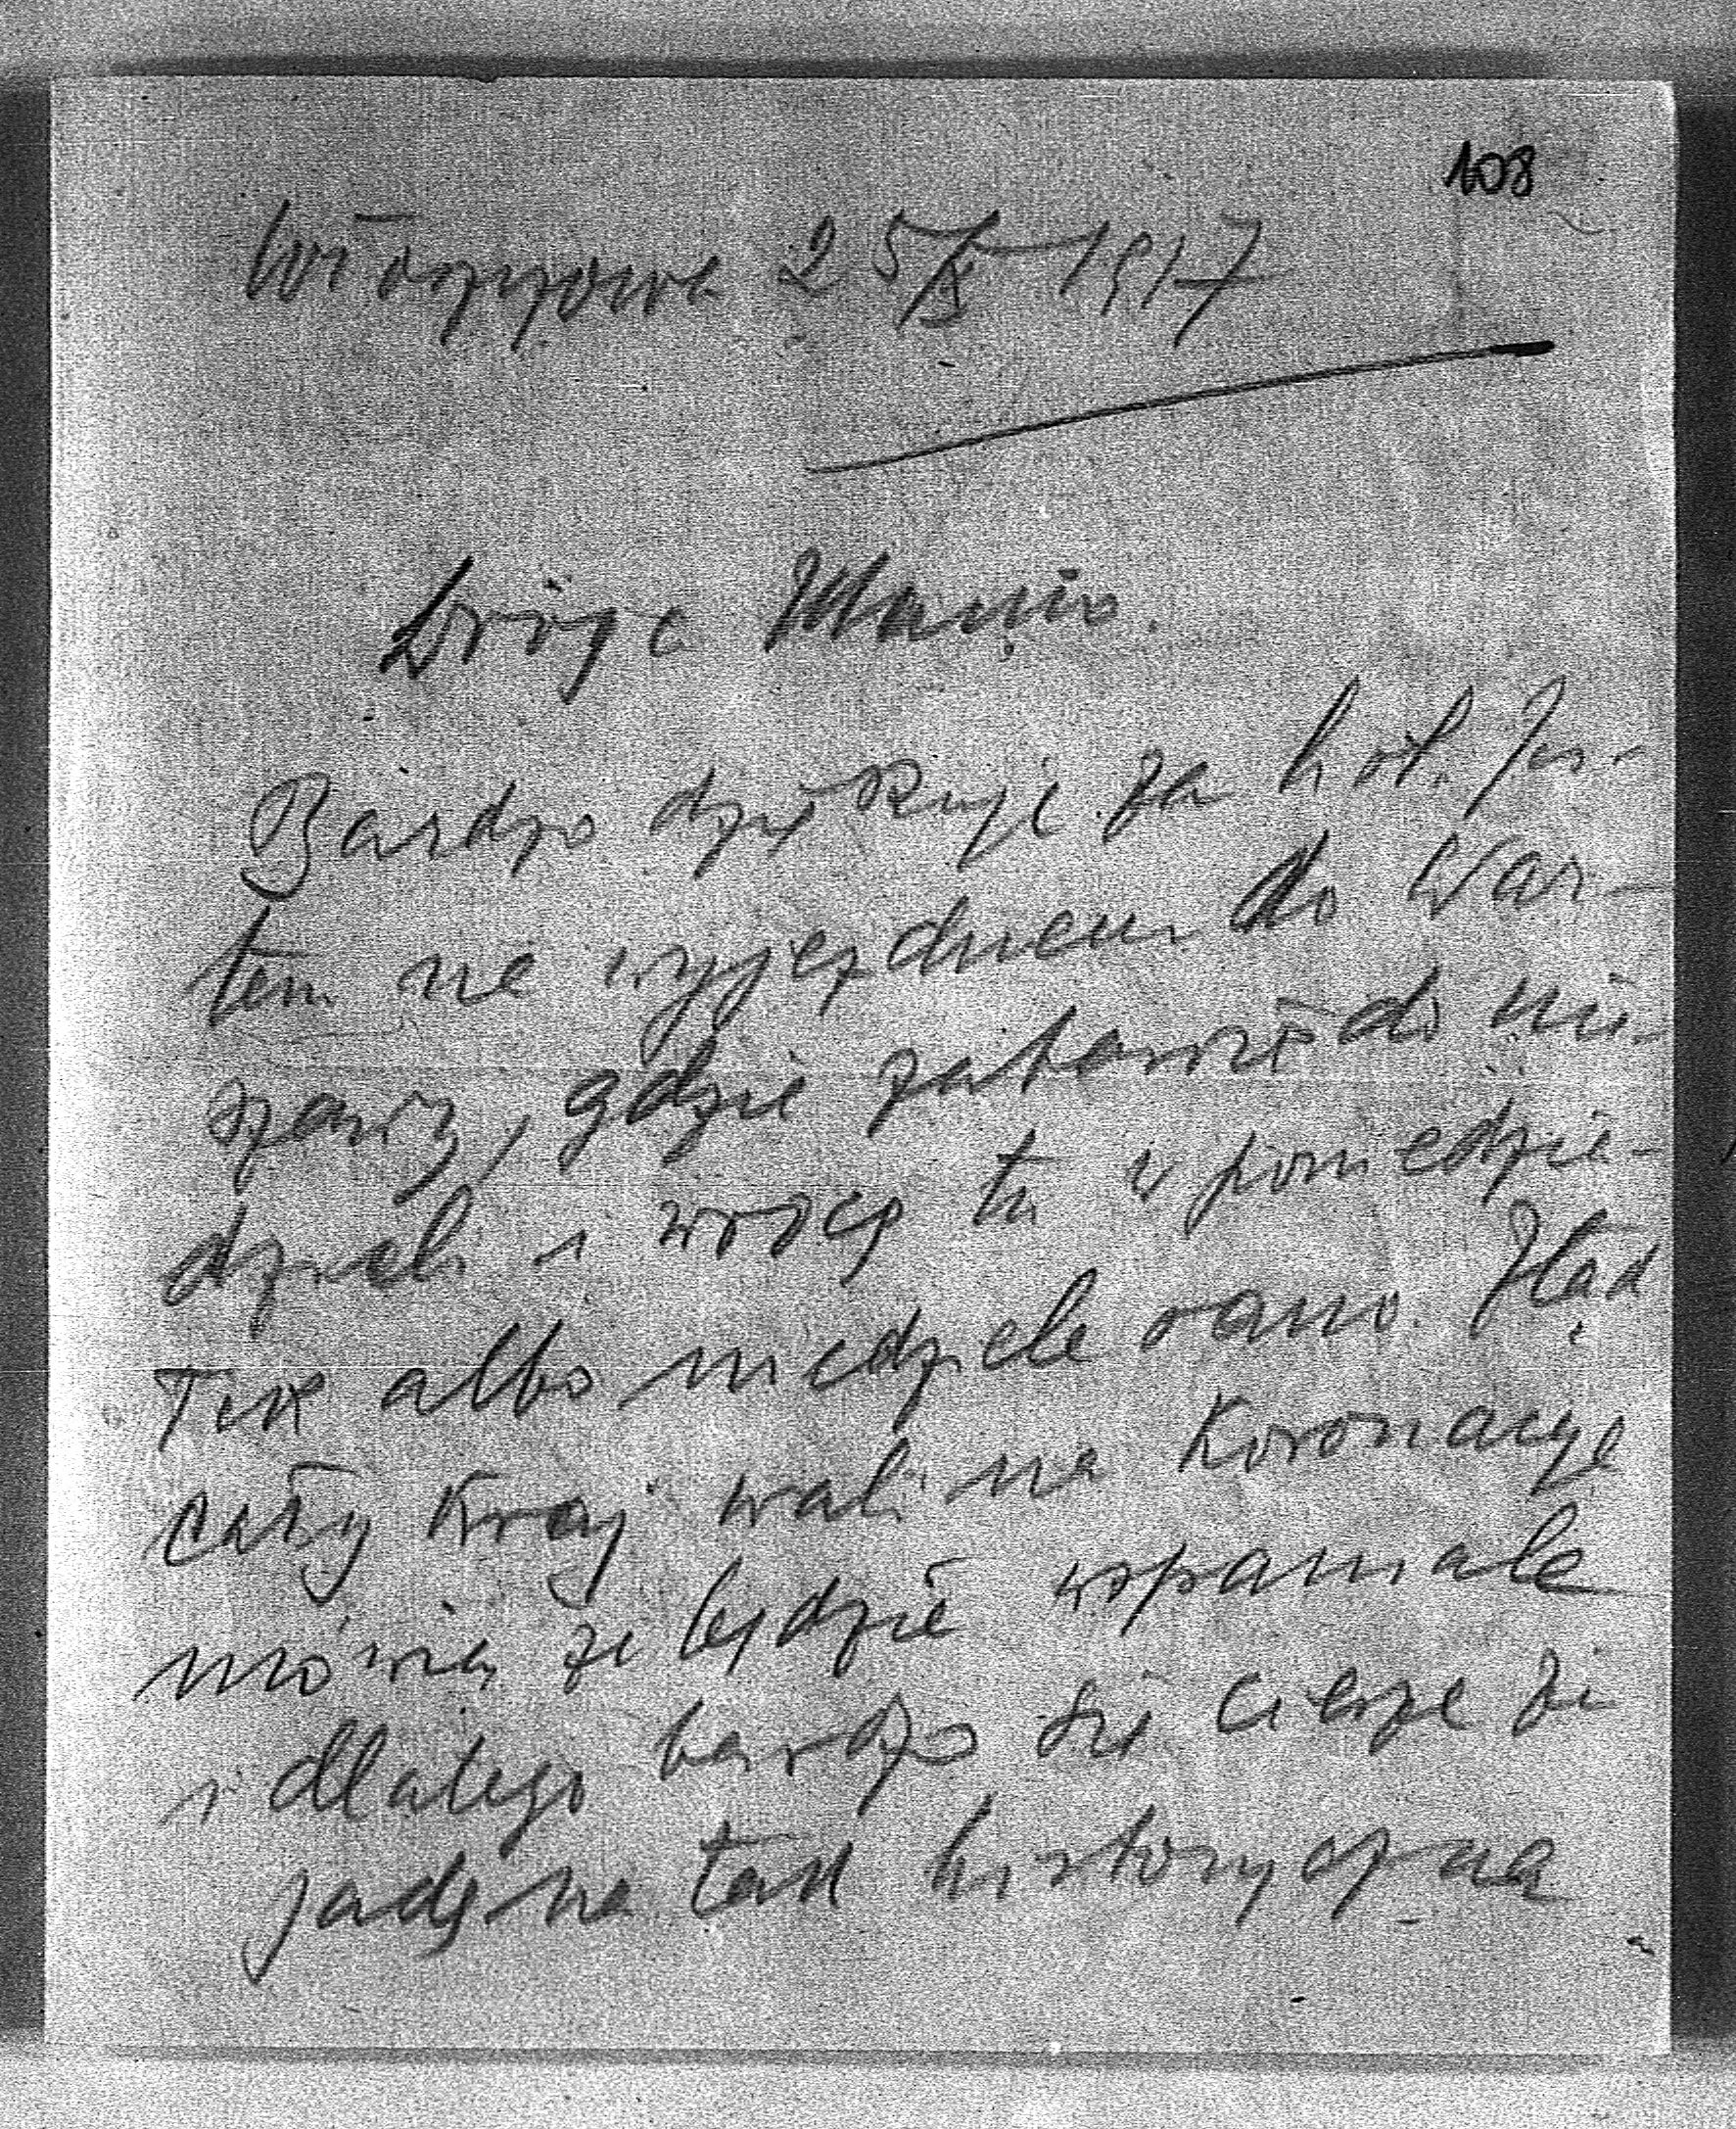 108
Włoszczowa 25/X 1917
Droga Maniu.
Bardzo dziękuję za list. Jes-
tem na wyjezdnem do War-
szawy, gdzie zabawię do nie-
dzieli i wrócę tu w poniedzia-
łek albo niedziele rano. Stąd
cały kraj wali na Koronacye
mówią że będzie wspaniale
i dlatego bardzo się ciesze że
jadę na tak historyczną